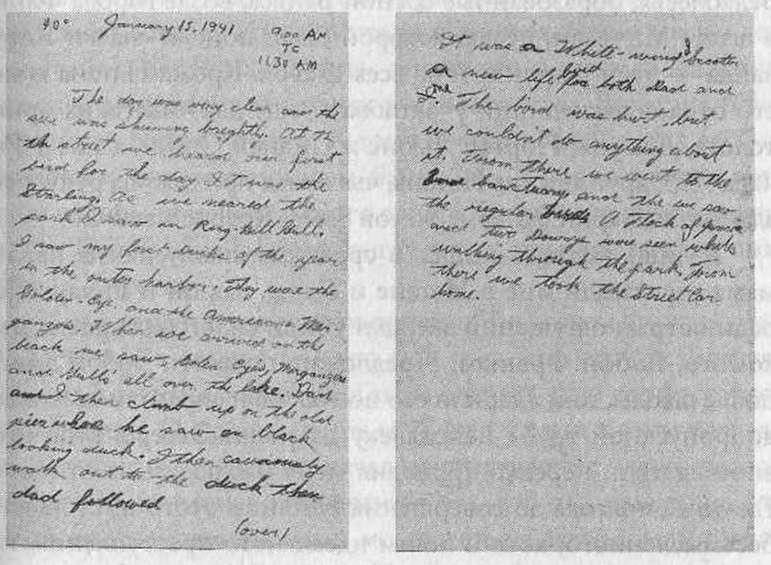 40° January 15, 1941
9:00 AM
TO
11:30 AM
The day was very clear and the
sun was shining brightly. At th
th street we heard our first
bird for the day. It was the
Starling. As we neared the
park I saw an Ring-bill Gull.
I saw my first ducks of the year
in the outer harbor. They was the
Golden-Eye and the American Mer-
ganzers. When we arrived on the
beach we saw Golen Eyes, Merganzers
and Gulls all over the lake. Dad
and I then climb up on the old
pier where he saw an black
looking duck. I then cauciously
walk out to the duck then
dad followed
(over)
It was a White-wing'd Scoter
a new life bird for both Dad and
I. The bird was hurt, but
we couldn't do anything about
it. From there we went to the
Sanctuary and the we saw
the regular birds. A flock of Juncos
and two Downys were seen while
walking through the park. From
there we took the Street Car
home.